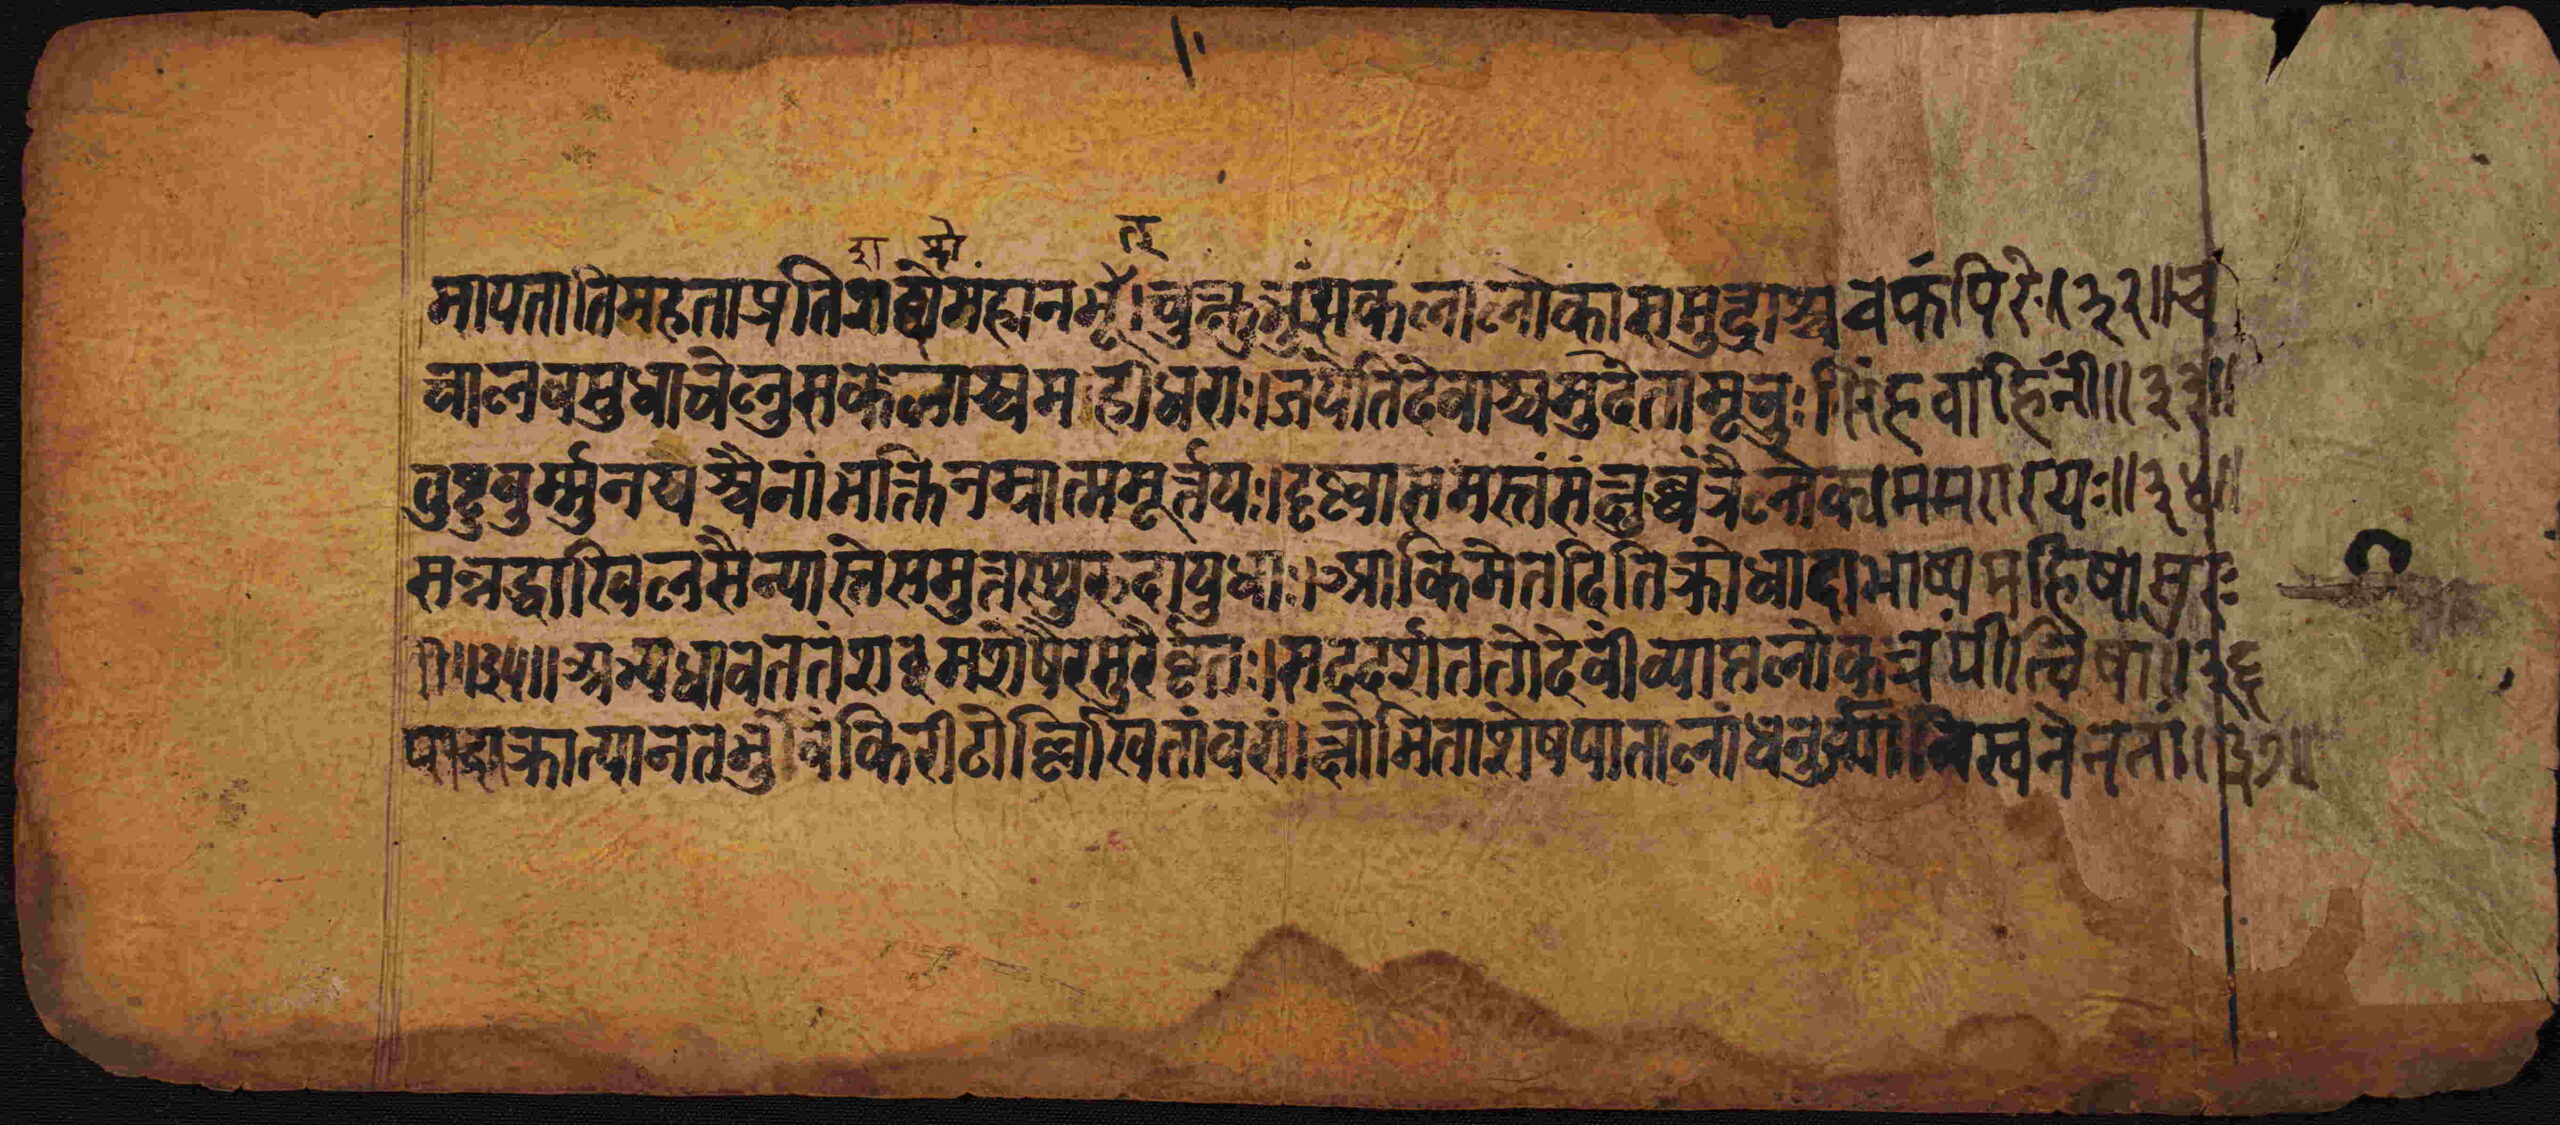 ब्दो त्
मापतातिमहताप्रतिशब्दोमहानभूत्।चुक्षुभुःसकलालोकासमुद्राश्चचकंपिरे॥३२॥च
चालवसुधाचेलुसकलाश्चमहीधराः।जयेतिदेवाश्चमुदेतामूचुःसिंहवाहिनीं॥३३॥
तुष्टुवुर्म्मुनयश्चैनांभक्तिनम्रात्ममूर्त्तयः।दृष्ट्वासमस्तंसंक्षुब्धंत्रैलोक्यममरारयः॥३४॥
सन्नद्धाखिलसैन्यास्तेसमुत्तस्थुरुदायुधाः।आःकिमेतदितिक्रोधादाभाष्यमहिषासुरः
॥३५॥अभ्यधावततंशब्दमशेषैरसुरैर्वृतः।सददर्शततोदेवींव्याप्तलोकत्रयींत्विषा॥३६
पादाक्रान्त्यानतभुवंकिरीटोल्लिखितांवरां।क्षोभिताशेषपातालांधनुर्ज्यानिस्वनेनतां॥३७॥